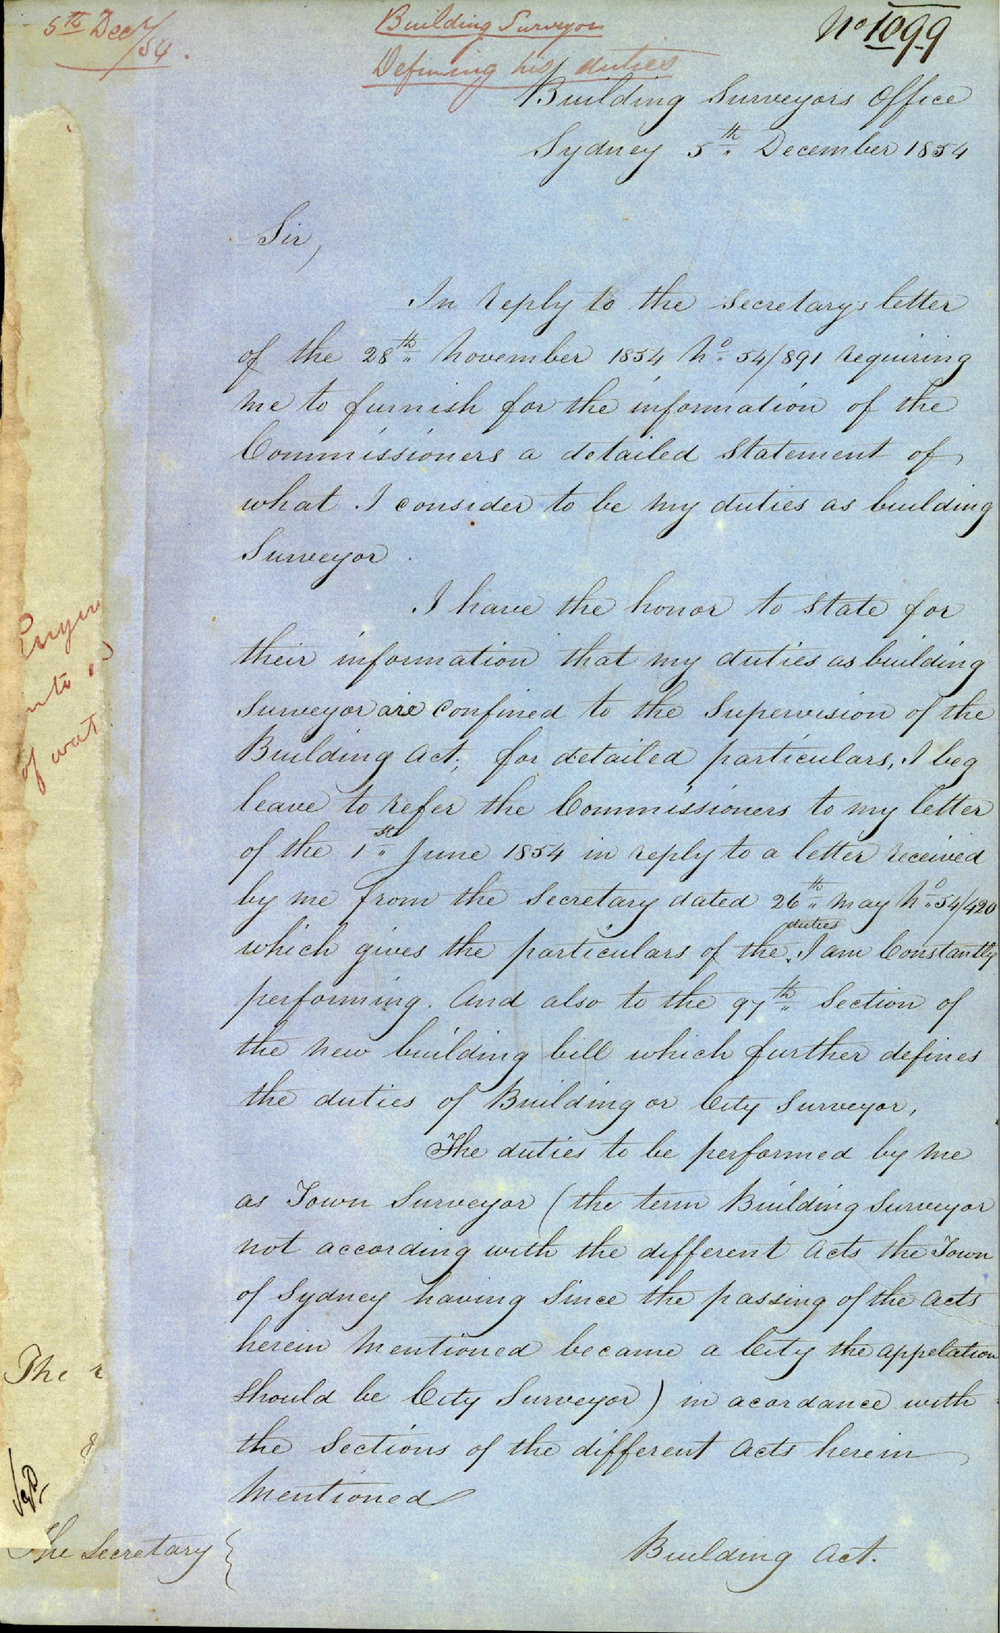 5th Decr/54.
Building Surveyor
Defining his duties
No 1099
Building Surveyors Office
Sydney 5th December 1854
Sir,
In reply to the Secretarys letter
of the 28th November 1854 No 54/891 requiring
me to furnish for the information of the
Commissioners a detailed Statement of
what I consider to be my duties as building
Surveyor.
I have the honor to state for
their information that my duties as building
Surveyor are confined to the Supervision of the
Building Act; for detailed particulars, I beg
leave to refer the Commissioners to my letter
of the 1st June 1854 in reply to a letter received
by me from the Secretary dated 26th May No 54/420
duties
which gives the particulars of the I am Constantly
performing. And also to the 97th Section of
the new building bill which further defines
the duties of Building or City Surveyor,
The duties to be performed by me
as Town Surveyor (the term Building Surveyor
not according with the different Acts the Town
of Sydney having Since the passing of the Acts
herein Mentioned became a City the appelation
should be City Surveyor) in acordance with
the Sections of the different Acts herein
Mentioned
of wat
The
The Secretary
Building Act.